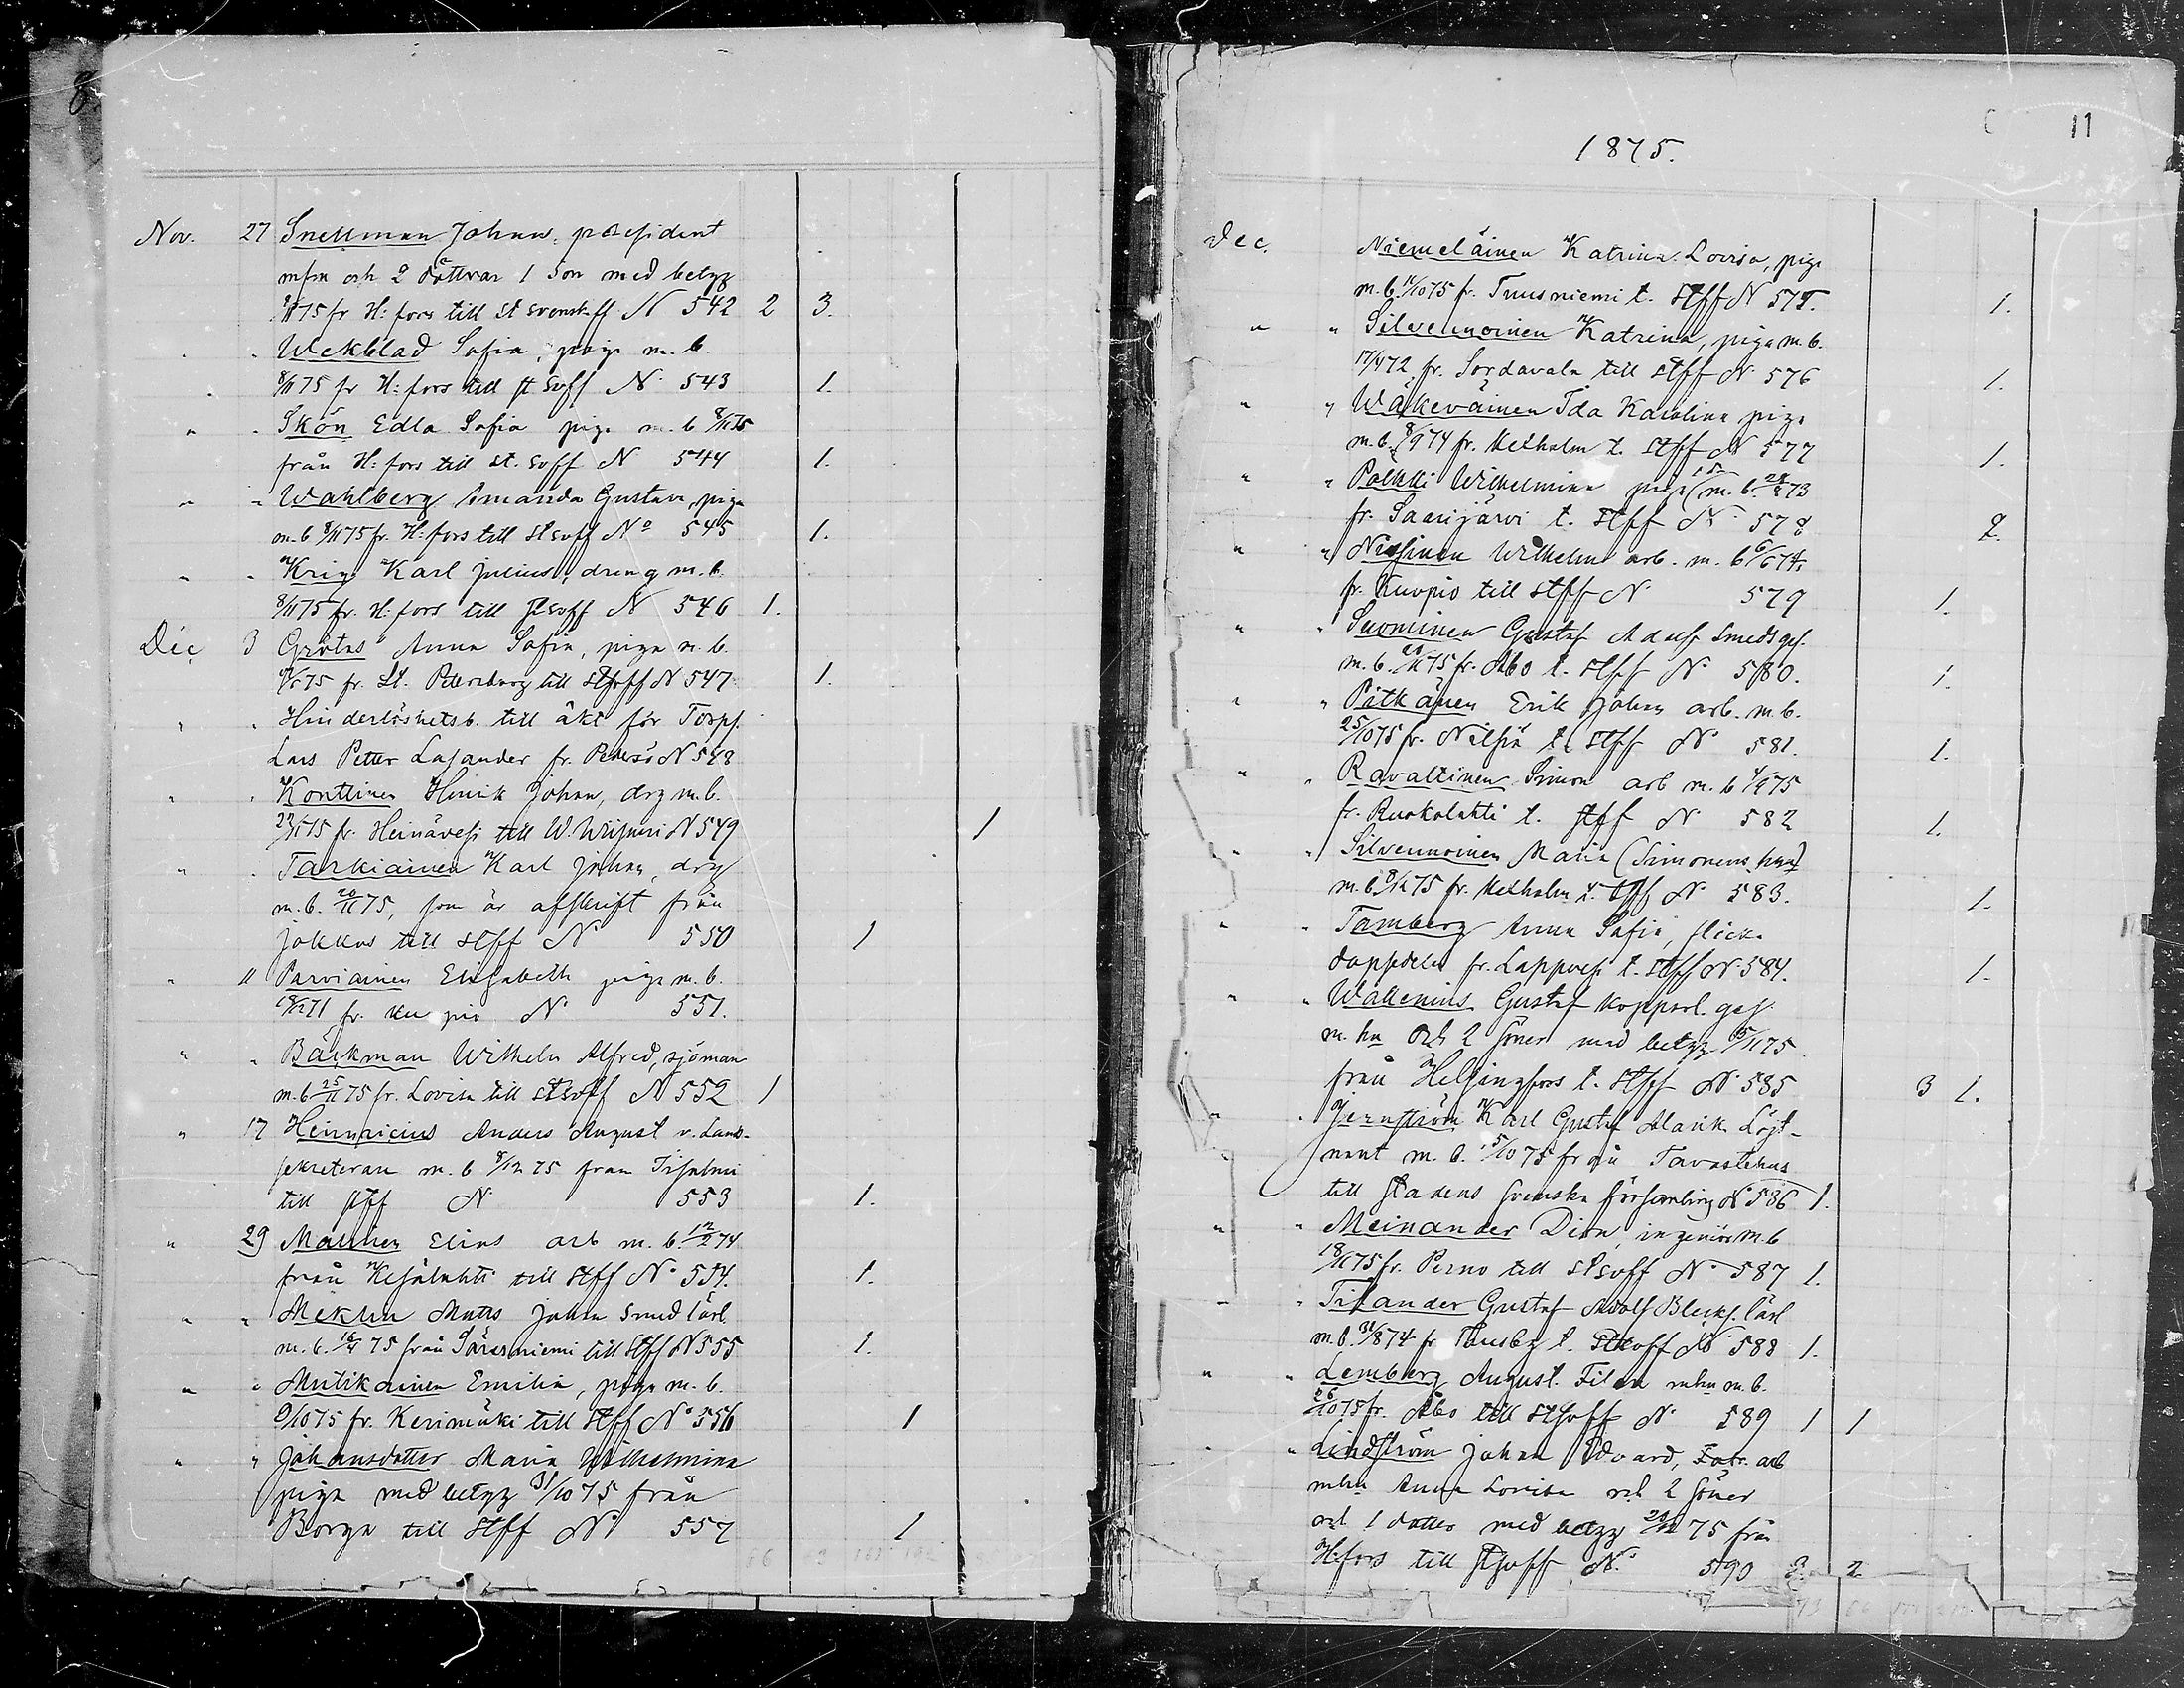 8.
Nov. 27 Snellman Johan, præsident
mfm och 2 döttrar 1 Son med betyg
8/1175 fr H:fors till st svensk ff N 542 2 3.
Wekblad Sofia, piga m. b.
8/1175 fr H:fors till st Svff N 543 1.
" Skön Edla Sofia piga m. b 8/1175
från H:fors till st. Svff N 544 1.
" " Wahlberg Amanda Gustava, piga
m. b 8/1175 fr. H:fors till st svff No 545 1.
" " Krig Karl Julius, dreng m. b.
8/1175 fr. H:fors till st svff N 546 1.
Dec 3 Grötas Anna Sofia, piga m. b.
75 fr. St. Petersburg till st svff N 547 1.
" " Hinderlöshetsb. till äkt för Torpf.
Lars Petter Lasander fr. N 548
" " Konttinen Henrik Johan, drg m. b.
75 fr. Heinävesi till W. Wiipuri N 549 1
" " Tarkiainen Karl Johan, drg
m. b. 20/11 75, som är afskrift från
Jokkas till stff N 550 1
" 11 Parviainen Elisabeth piga m. b.
71 fr. Kuopio N 551.
" " Bäckman Wilhelm Alfred, sjöman
m. b 25/11 75 fr. Lovisa till st svff N 552 1
" 17 Heinricius Anders August v. Land-
sekreterare m. b 8/12 75 från Iisalmi
till stff N 553 1.
" 29 Manninen Elias arb m. b. 12/2 74
från Kesälahti till stff No 554. 1.
" " Meklin Matts Johan Smed lärl.
m. b. 75 från Säräisniemi till stff N 555 1.
" " Mutikainen Emilia, piga m. b.
9/1075 fr. Kerimäki till stff No 556 1
" " Johansdotter Maria Wilhelmina
piga med betyg 31/10 75 från
Borgå till stff No 557 1
1875.
11
Dec. Niemeläinen Katrina Lovisa, piga
m. b. 11/1075 fr. Tuusniemi t. stff N 575. 1.
" " Silvennoinen Katrina, piga m. b.
17/472 fr. Sordavala till stff N 576 1.
" " Wäkeväinen Ida Karolina piga
m. b. 8/974 fr. Kexholm t. stff N 577 1.
" " Polkki Wilhelmina piga m. b. 73
fr. Saarijärvi t. stff N 578 2.
" " Nissinen Wilhelm arb. m. b 6/674
fr. Kuopio till stff N 579 1.
" " Suominen Gustaf Adolf Smedsges.
m. b. 75 fr. Åbo t. stff N 580. 1.
" " Pitkänen Erik Johan arb. m. b.
25/1075 fr. Nilsiä t. stff N 581. 1.
" " Ravattinen Simon arb m. b 4/975
fr. Ruokolahti t. stff N 582 1.
" " Silvennoinen Maria (Simonens hru)
m. b. 75 fr. Kexholm t. stff N 583. 1.
" " Tamberg Anna Sofia, flicka
fr. Lappvesi t. stff N 584. 1.
" " Wallenius Gustaf kopparsl. ges.
m. hu och 2 söner med betyg 75
från Helsingfors t. stff N 585 3 1.
" " Jernström Karl Gustaf Alarik Löjt-
nant m. b. 5/10 75 från Tavastehus
till stadens svenska församling No 586 1.
" " Meinander Dion, ingeniör m. b
18/1175 fr. Perno till st svff No 587 1.
" " Tilander Gustaf Adolf Blecks. lärl
m. b. 31/874 fr. Thusby t. st svff No 588 1.
" " Lemberg August. Filen mhu m. b.
26/1075 fr. Åbo till st svff N 589 1 1
" " Lindström Johan Edvard, Fabr. arb
mhu Anna Lovisa och 2 söner
och 1 dotter med betyg 75 från
H:fors till st svff No 590 3. 2